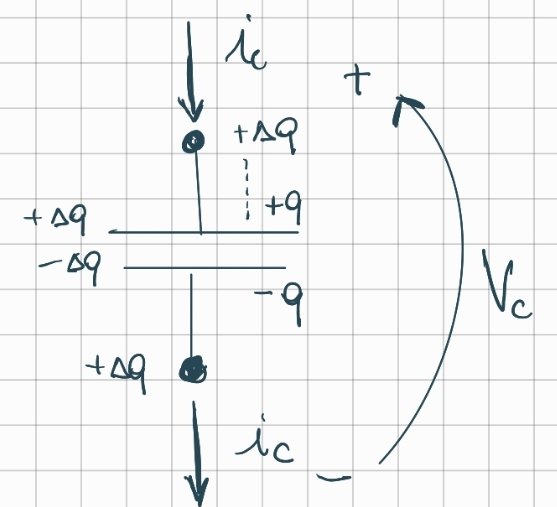 i_c
+
+Δq
+q
+Δq
-Δq
-q
V_c
+Δq
i_c
-